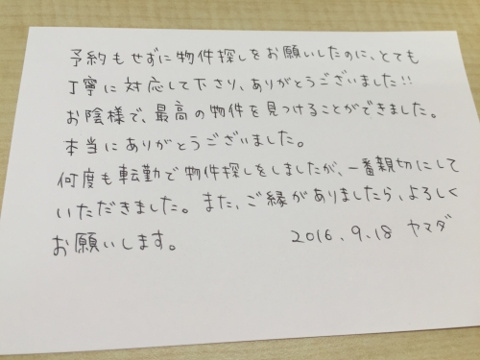 予約もせずに物件探しをお願いしたのに、とても
丁寧に対応して下さり、ありがとうございました!!
お陰様で、最高の物件を見つけることができました。
本当にありがとうございました。
何度も転勤で物件探しをしましたが、一番親切にして
いただきました。また、ご縁がありましたら、よろしく
お願いします。 2016.9.18 ヤマダ